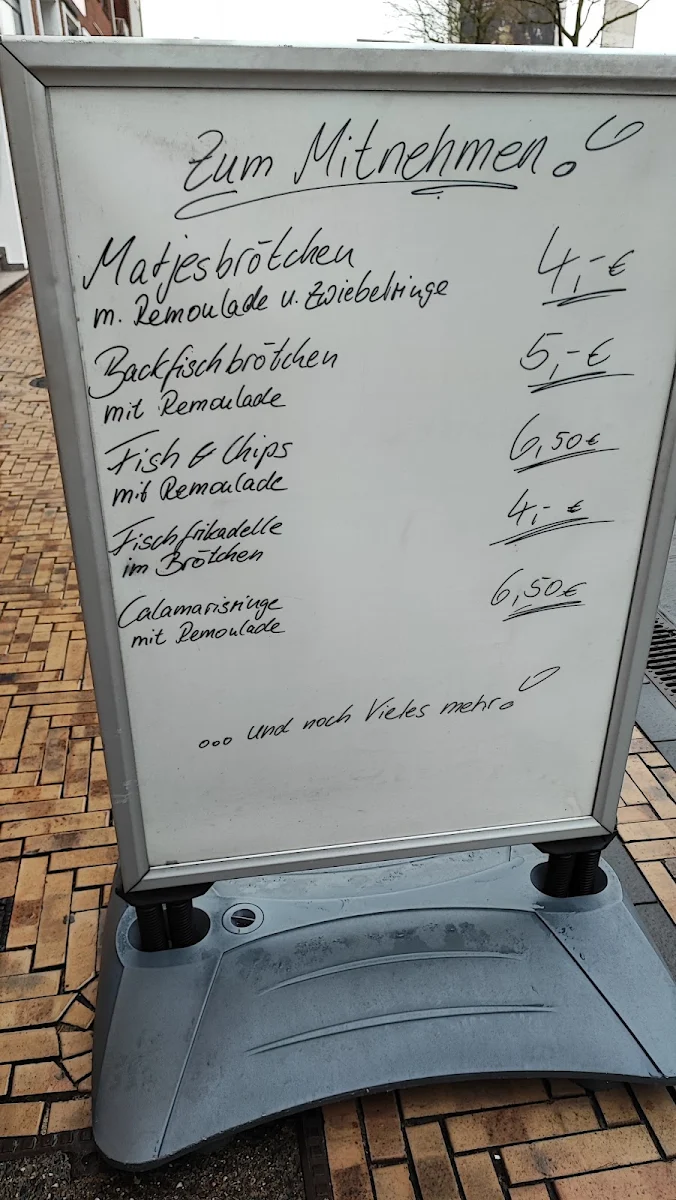 Zum Mitnehmen!
Matjesbrötchen 4,-€
m. Remoulade u. Zwiebelringe
Backfischbrötchen 5,-€
mit Remoulade
Fish & Chips 6,50€
mit Remoulade
Fischfrikadelle 4,-€
im Brötchen
Calamarisringe 6,50€
mit Remoulade
... und noch Vieles mehr!